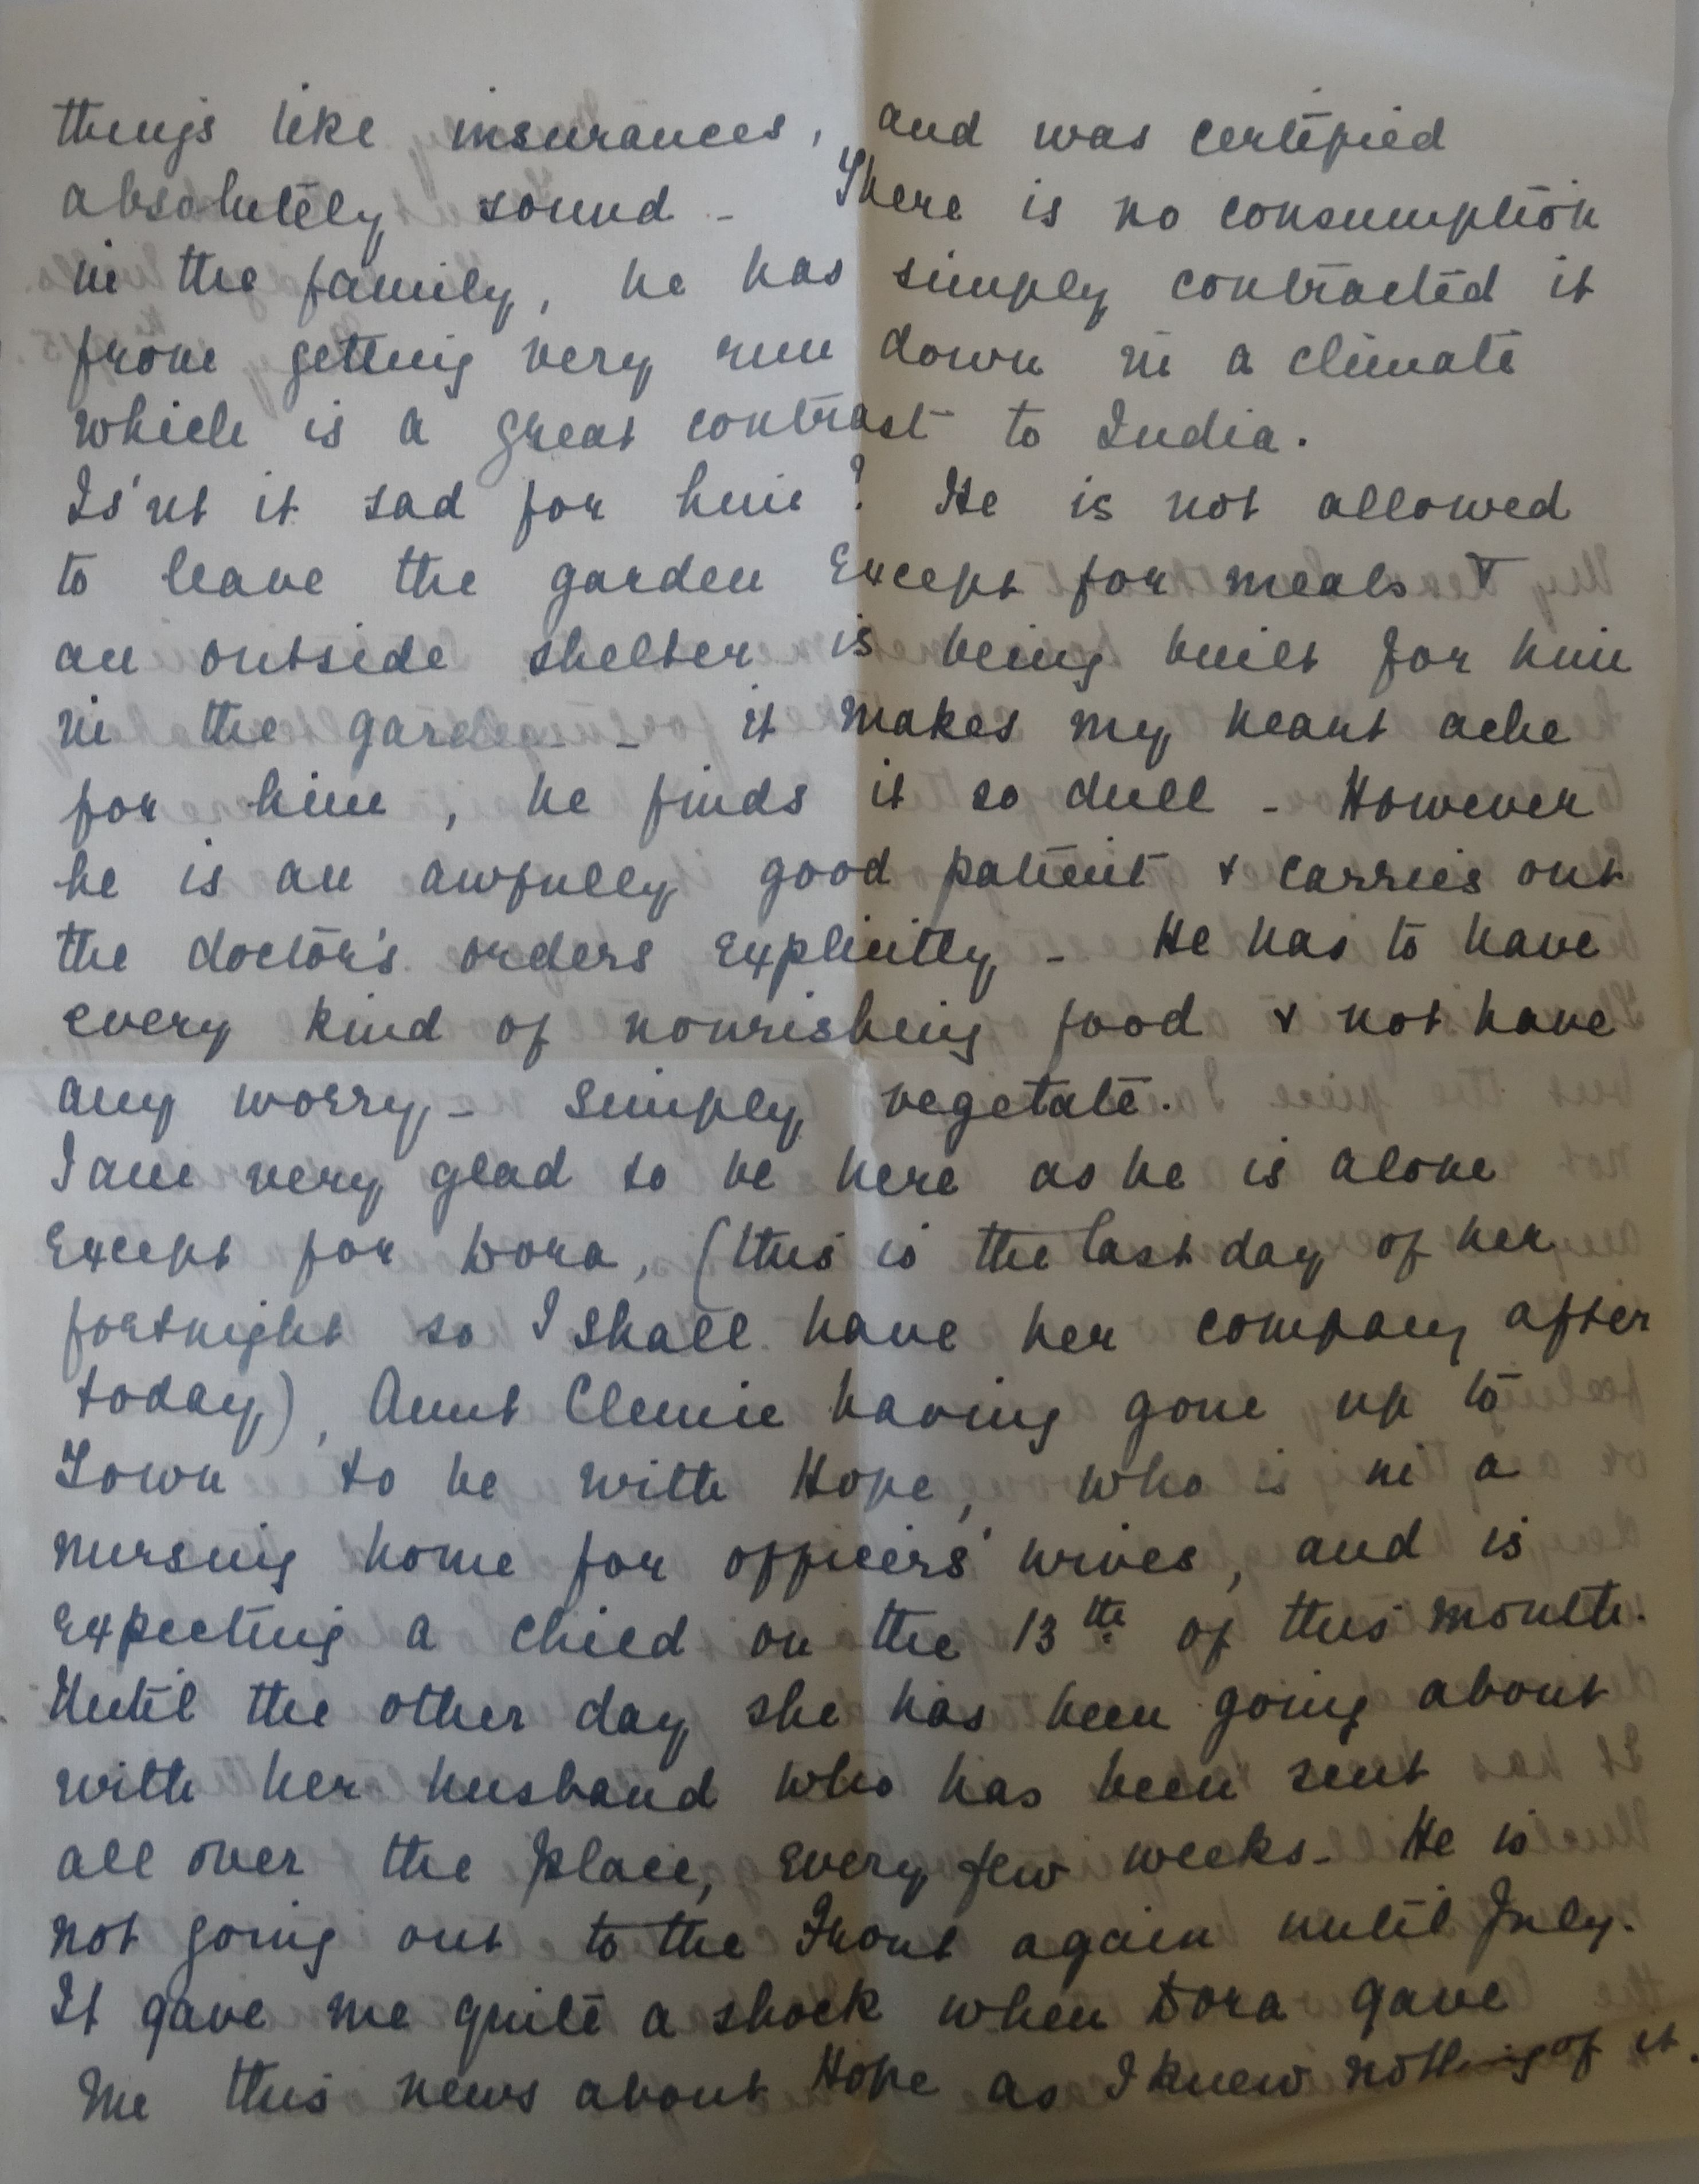 things like insurances, and was certified
absolutely sound - There is no consumption
in the family, he has simply contracted it
from getting very run down in a climate
which is a great contrast to India.
Is'nt it sad for him? He is not allowed
to leave the garden except for meals &
an outside shelter is being built for him
in the garden - it makes my heart ache
for him, he finds it so dull - However
he is an awfully good patient & carries out
the doctor's orders explicitly - He has to have
every kind of nourishing food & not have
any worry, - simply vegetate.
I am very glad to be here as he is alone
except for Dora, (this is the last day of her
fortnight so I shall have her company after
today), Aunt Clemie having gone up to
Town to be with Hope, who is in a
nursing home for officers' wives, and is
expecting a child on the 13th of this month.
Until the other day she has been going about
with her husband who has been sent
all over the place, every few weeks - He is
not going out to the Front again until July.
It gave me quite a shock when Dora gave
me this news about Hope as I knew nothing of it.